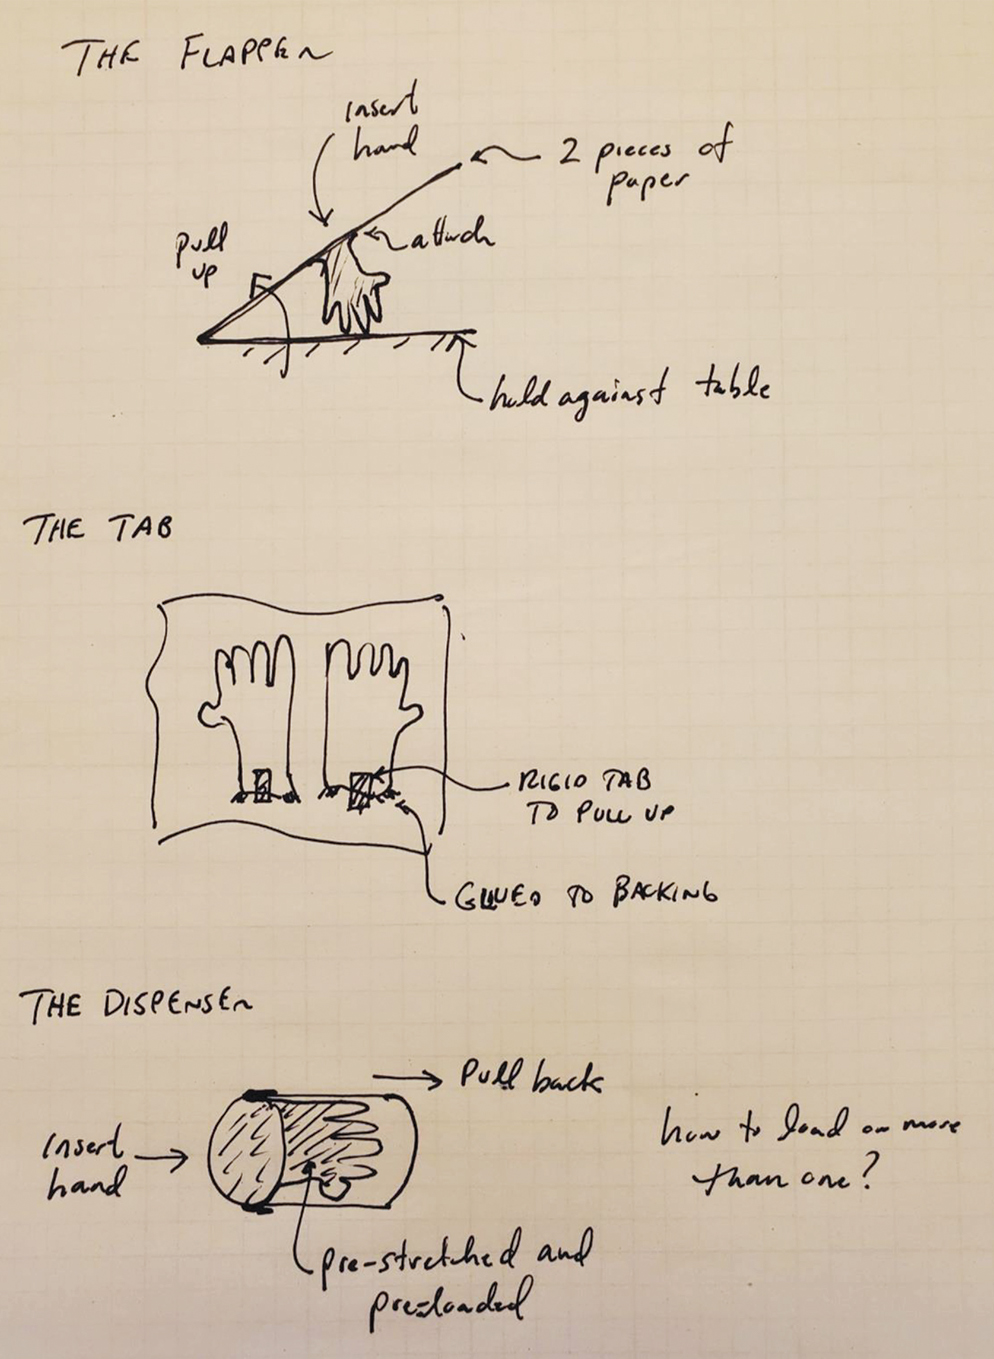 THE FLAPPER
insert
hand
2 pieces of
paper
attach
pull
up
hold against table
THE TAB
RIGID TAB
TO PULL UP
GLUED TO BACKING
THE DISPENSER
Pull back
insert
hand
how to load on more
than one?
pre-stretched and
pre-loaded